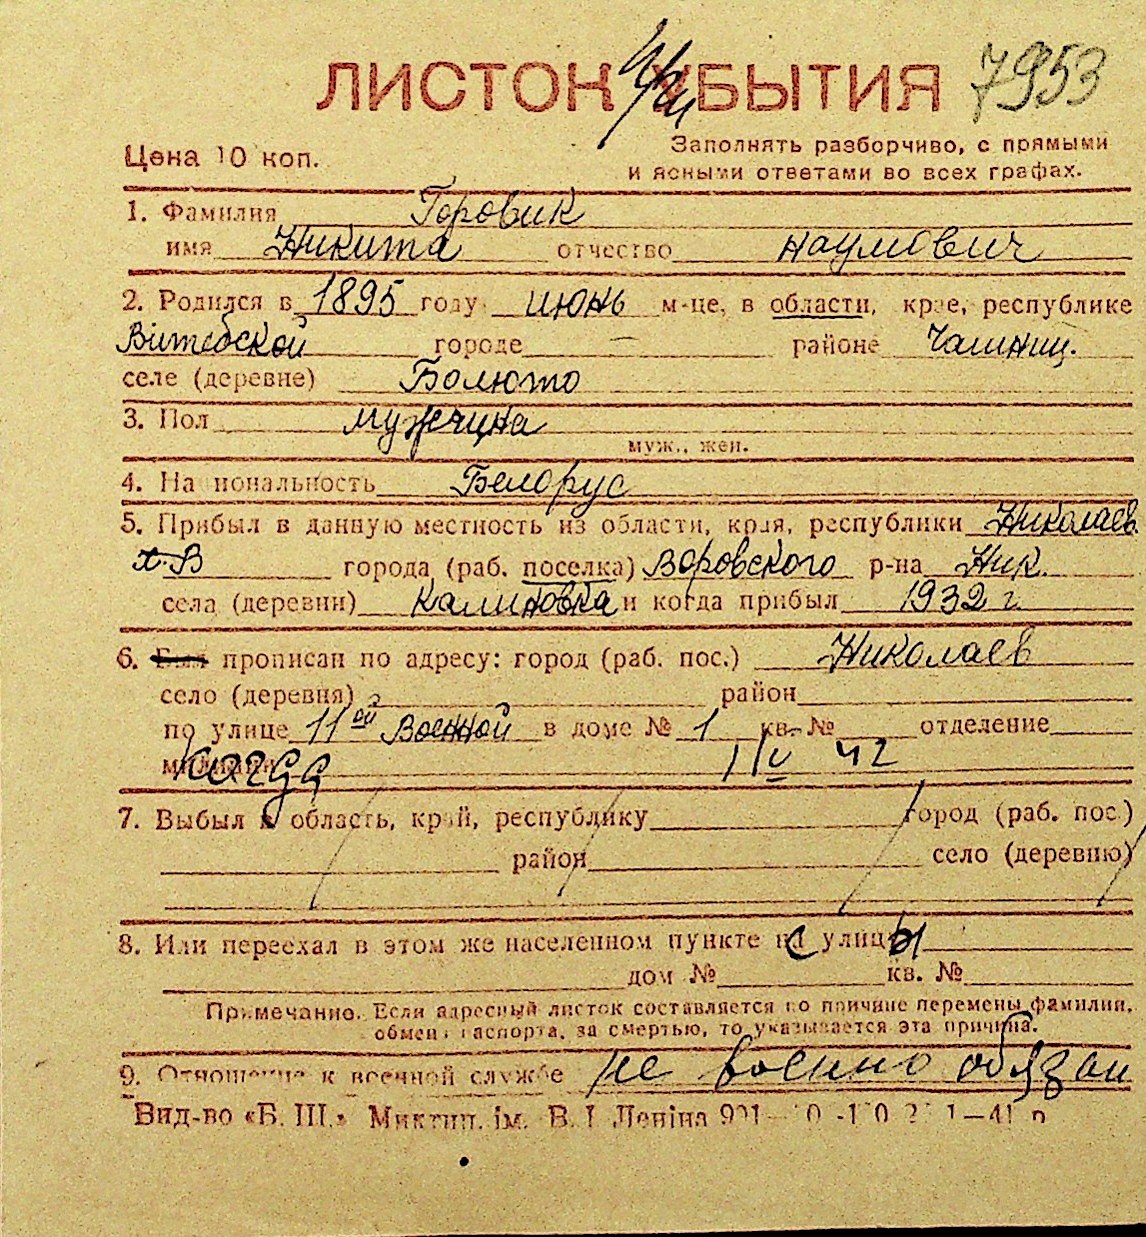 ЛИСТОК УБЫТИЯ 7953
Цена 10 коп.
Заполнять разборчиво, с прямыми
и ясными ответами во всех графах.
1. Фамилия Горовик
имя Никита отчество Наумович
2. Родился в 1895 году июнь м-це, в области, крае, республике
Вітебской городе — районе Чашниц.
селе (деревне) Болюто
3. Пол мужчина
муж., жен.
4. Национальность Белорус
5. Прибыл в данную местность из области, края, республики Николаев
города (раб. поселка) Воровского р-на Ник.
села (деревни) Калиновка и когда прибыл 1932 г.
6. Был прописан по адресу: город (раб. пос.) Николаев
село (деревня) район
по улице 11ой Военной в доме № 1 кв. № отделение
милиции когда 1/IV 42
7. Выбыл в область, край, республику город (раб. пос.)
район село (деревню)
8. Или переехал в этом же населенном пункте с улицы
дом № кв. №
Примечание. Если адресный листок составляется по причине перемены фамилии,
обмена паспорта, за смертью, то указывается эта причина.
9. Отношение к военной службе не военно обязан
Вид-во «Б. Ш.» Миктип. ім. В. І Леніна